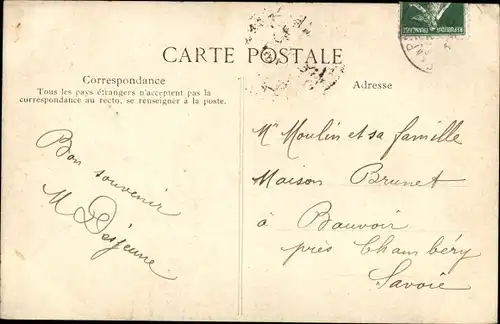 CARTE POSTALE
Correspondance
Tous les pays étrangers n'acceptent pas la
correspondance au recto, se renseigner à la poste.
Adresse
RÉPUBLIQUE FRANÇAISE
Bon souvenir
M Déjeune
Mr Moulin et sa famille
Maison Brunet
à Bauvoir
près Chambéry
Savoie